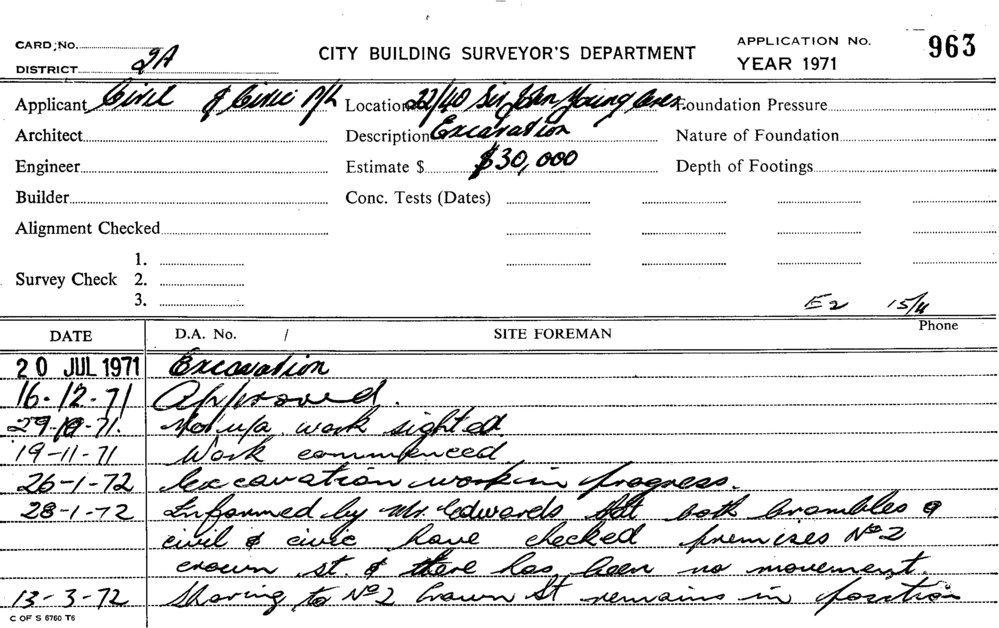 CARD, No.
DISTRICT 2A
CITY BUILDING SURVEYOR'S DEPARTMENT
APPLICATION No. 963
YEAR 1971
Applicant Civil & Civic P/L Location 22/40 Sir John Young Cres. Foundation Pressure
Architect Description Excavation Nature of Foundation
Engineer Estimate $ $30,000 Depth of Footings
Builder Conc. Tests (Dates)
Alignment Checked
1.
Survey Check 2.
3.
E2 15/4
Phone
DATE D.A. No. / SITE FOREMAN
20 JUL 1971 Excavation
16-12-71 Approved.
29-10-71. No u/a work sighted
19-11-71 Work commenced
26-1-72 Excavation work in progress.
28-1-72 Informed by Mr. Edwards tht both brambles &
civil & civic have checked premises No 2
crown st. & there has been no movement.
13-3-72 Shoring to No 2 Crown St remains in position
C OF S 6760 T6